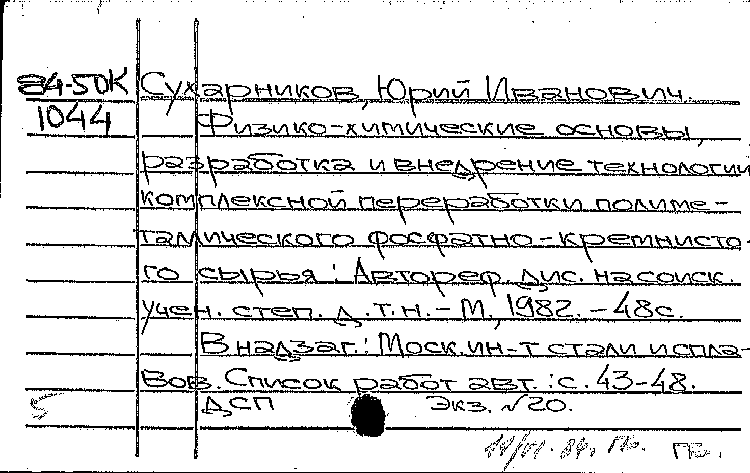 84-50К Сухарников, Юрий Иванович.
1044 Физико-химические основы,
разработка и внедрение технологии
комплексной переработки полиме-
таллического фосфатно-кремнисто-
го сырья: Автореф. дис. на соиск.
учен. степ. д.т.н. - М., 1982. - 48с.
В надзаг.: Моск. ин-т стали и спла-
вов. Список работ авт.: с. 43-48.
5 ДСП Экз. №20.